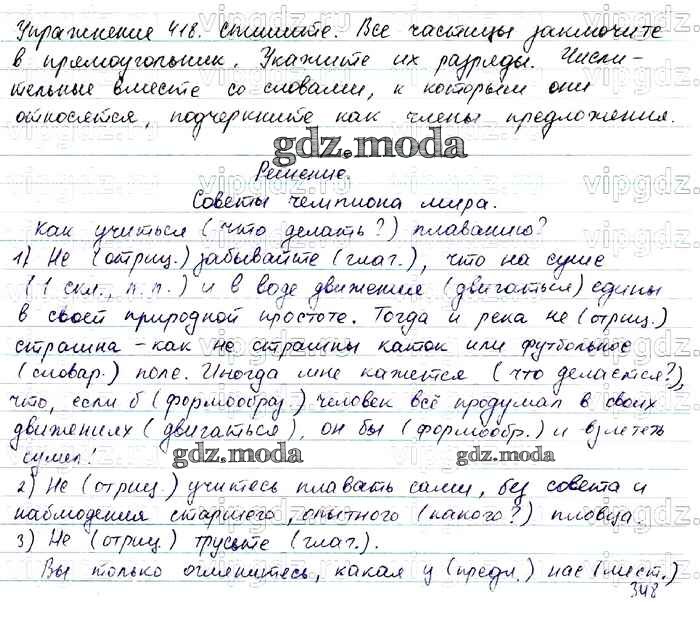 Упражнение 418. Спишите. Все частицы заключите
в прямоугольник. Укажите их разряды. Числи-
тельные вместе со словами, к которым они
относятся, подчеркните как члены предложения.
gdz.moda
Решение.
Советы чемпиона мира.
Как учиться (что делать?) плаванию?
1) Не (отриц.) забывайте (глаг.), что на суше
(1 скл., п.п.) и в воде движения (двигаться) едины
в своей природной простоте. Тогда и река не (отриц.)
страшна - как не страшны каток или футбольное
(словар.) поле. Иногда мне кажется (что делается?),
что, если б (формообраз.) человек всё продумал в своих
движениях (двигаться), он бы (формообр.) и взлететь
сумел!
gdz.moda gdz.moda
2) Не (отриц.) учитесь плавать сами, без совета и
наблюдения старшего, опытного (какого?) пловца.
3) Не (отриц.) трусьте (глаг.).
Вы только оглянитесь, какая у (предл.) нас (мест.)
348